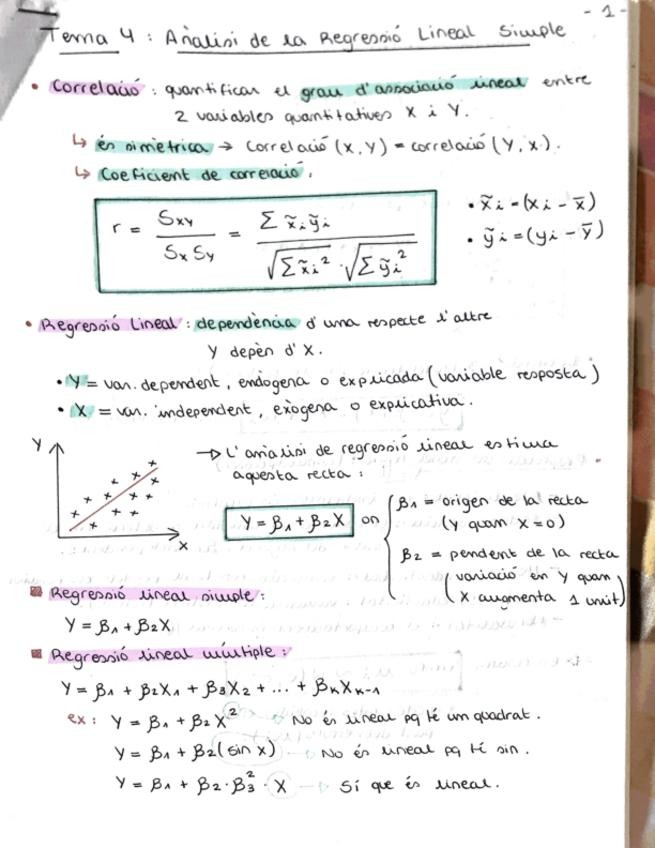 - 1 -
Tema 4 : Anàlisi de la Regressió Lineal Simple
• Correlació : quantificar el grau d'associació lineal entre
2 variables quantitatives X i Y.
↳ és simètrica → Correlació (X, Y) = correlació (Y, X).
↳ Coeficient de correlació.
r = Sxy / (Sx Sy) = Σ x̃i ỹi / (√Σ x̃i² · √Σ ỹi²)
• x̃i = (xi - x̄)
• ỹi = (yi - ȳ)
• Regressió Lineal : dependència d'una respecte l'altre
Y depèn d'X.
• Y = var. dependent, endògena o explicada (variable resposta)
• X = var. independent, exògena o explicativa.
Y
X
→ L'anàlisi de regressió lineal estima
aquesta recta :
Y = β1 + β2X on
β1 = origen de la recta
(Y quan X = 0)
β2 = pendent de la recta
(variació en Y quan
X augmenta 1 unit)
Regressió lineal simple :
Y = β1 + β2X
Regressió lineal múltiple :
Y = β1 + β2X1 + β3X2 + ... + βKXK-1
ex : Y = β1 + β2X² → No és lineal pq té un quadrat.
Y = β1 + β2(sin x) → No és lineal pq té sin.
Y = β1 + β2 · β3² · X → Sí que és lineal.